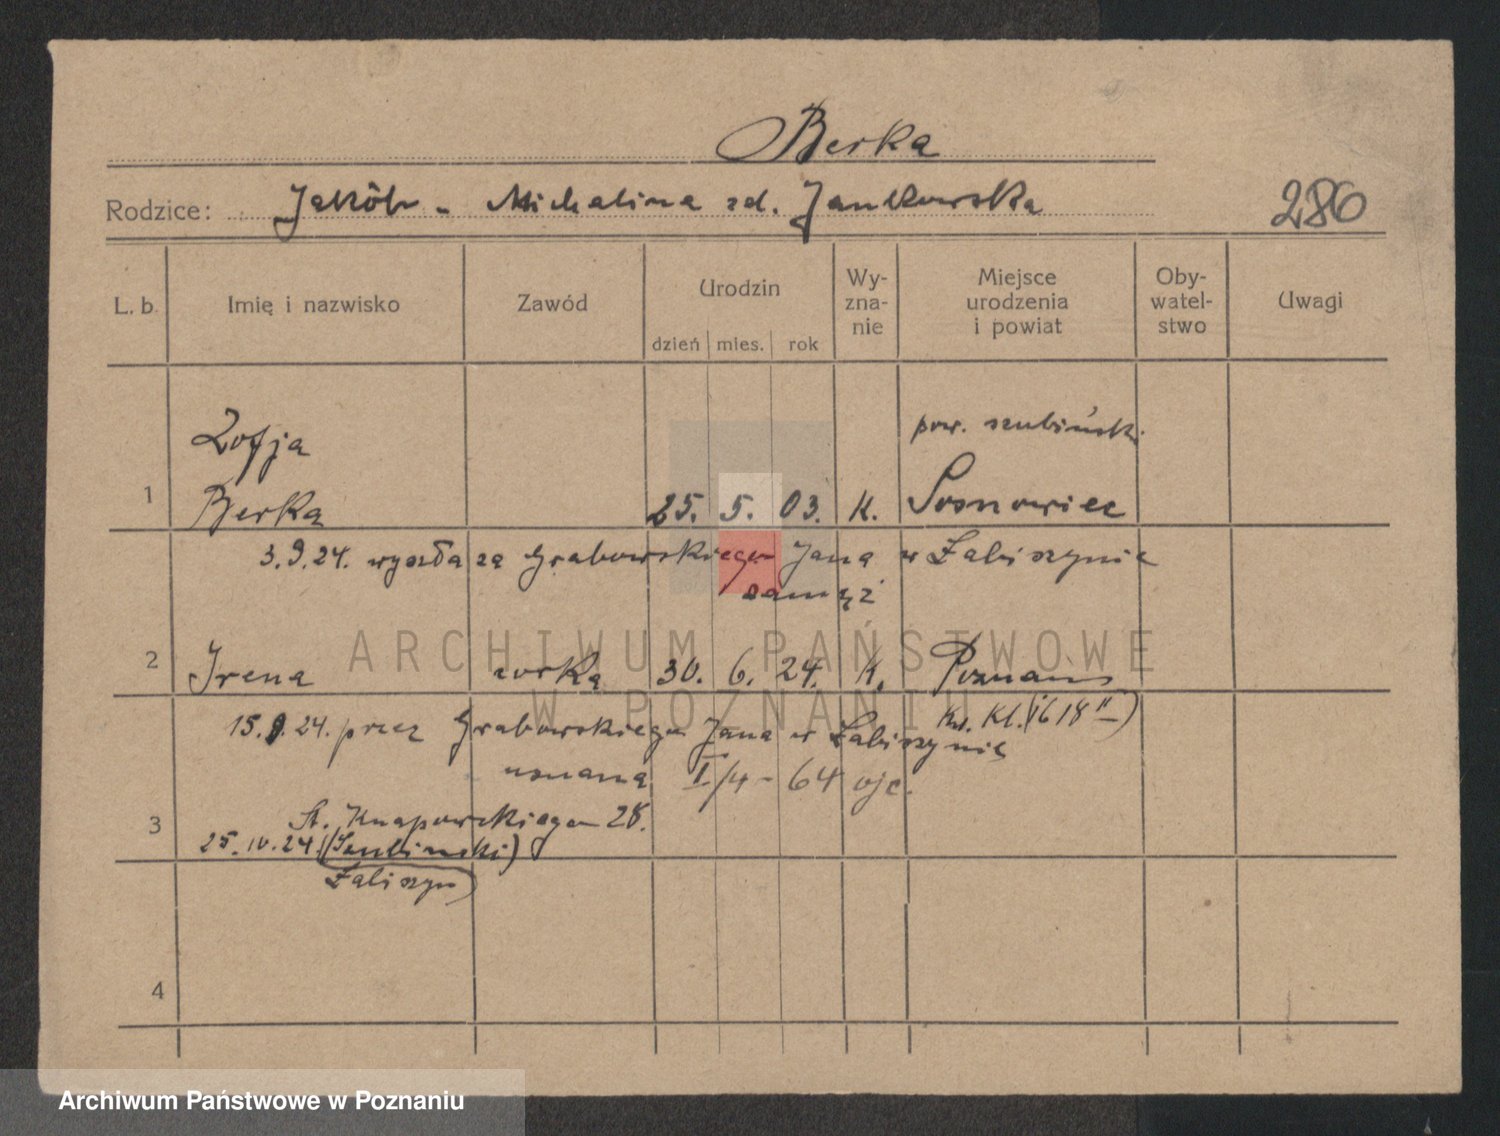 Berka
Rodzice: Jakób - Michalina zd. Jankowska
286
L. b.
Imię i nazwisko
Zawód
Urodzin
dzień mies. rok
Wy-
zna-
nie
Miejsce
urodzenia
i powiat
Oby-
watel-
stwo
Uwagi
pow. szubiński
Zofja
1 Berka 25. 5. 03. K. Sosnowiec
3.9.24. wyszła za Grabowskiego Jana w Łabiszynie
zamąż
2 Irena córka 30. 6. 24. K. Poznań
Kl. (1618 II)
15.9.24. przez Grabowskiego Jana w Łabiszynie
uznaną I/4 - 64 ojc.
3 St. Knapowskiego 28.
25.IV.24. (Szubiński)
Łabiszyn)
4
ARCHIWUM PAŃSTWOWE
W POZNANIU
Archiwum Państwowe w Poznaniu